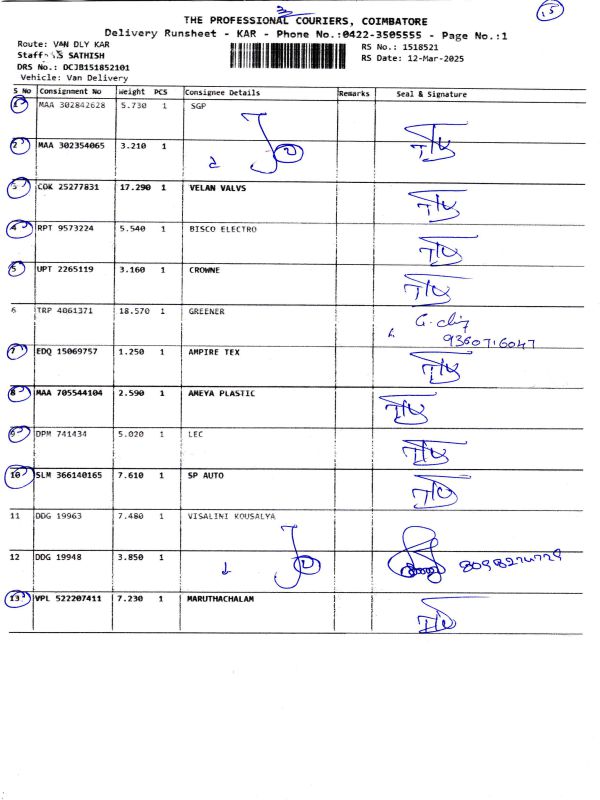 THE PROFESSIONAL COURIERS, COIMBATORE
Delivery Runsheet - KAR - Phone No.:0422-3505555 - Page No.:1
Route: VAN DLY KAR
RS No.: 1518521
Staff SATHISH
RS Date: 12-Mar-2025
DRS No.: DCJB151852101
Vehicle: Van Delivery
S No Consignment No Weight PCS Consignee Details Remarks Seal & Signature
1 MAA 302842628 5.730 1 SGP
2 MAA 302354065 3.210 1
3 COK 25277831 17.290 1 VELAN VALVS
4 RPT 9573224 5.540 1 BISCO ELECTRO
5 UPT 2265119 3.160 1 CROWNE
6 TRP 4061371 18.570 1 GREENER
9360716047
7 EDQ 15069757 1.250 1 AMPIRE TEX
8 MAA 705544104 2.590 1 AMEYA PLASTIC
9 DPM 741434 5.020 1 LEC
10 SLM 366140165 7.610 1 SP AUTO
11 DDG 19963 7.480 1 VISALINI KOUSALYA
12 DDG 19948 3.850 1
13 VPL 522207411 7.230 1 MARUTHACHALAM